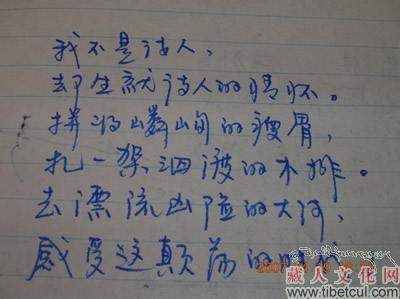 我不是诗人、
却生就诗人的情怀。
拼将嶙峋的瘦骨，
扎一架泅渡的木排。
去漂流凶险的大河，
感受这颠荡的
2007
藏人文化网
www.tibetcul.com